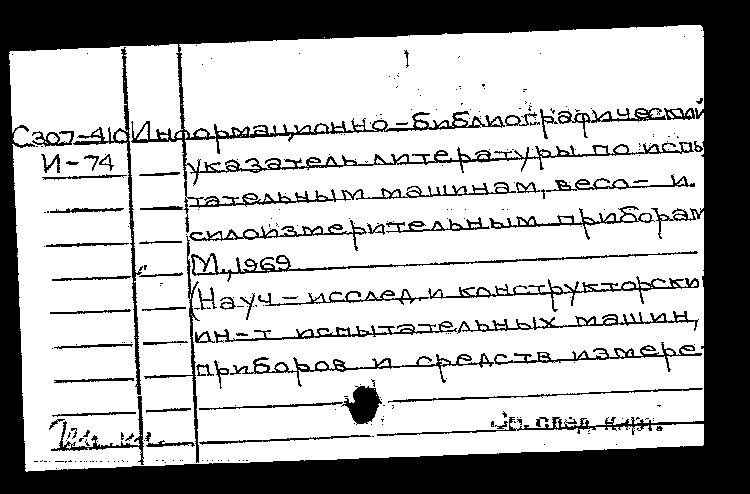 С307-410 Информационно-библиографический
И-74 указатель литературы по испы
тательным машинам, весо- и
силоизмерительным приборам
М., 1969
(Науч-исслед и конструкторский
ин-т испытательных машин,
приборов и средств измере-
См. след. карт.